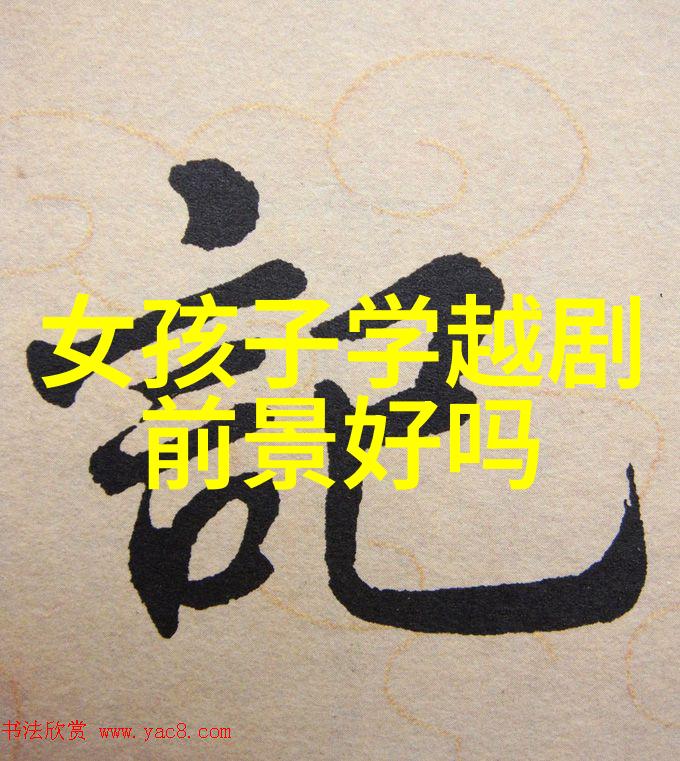 記
女孩子学越剧
前景好吗
书法欣赏 www.yac8.com